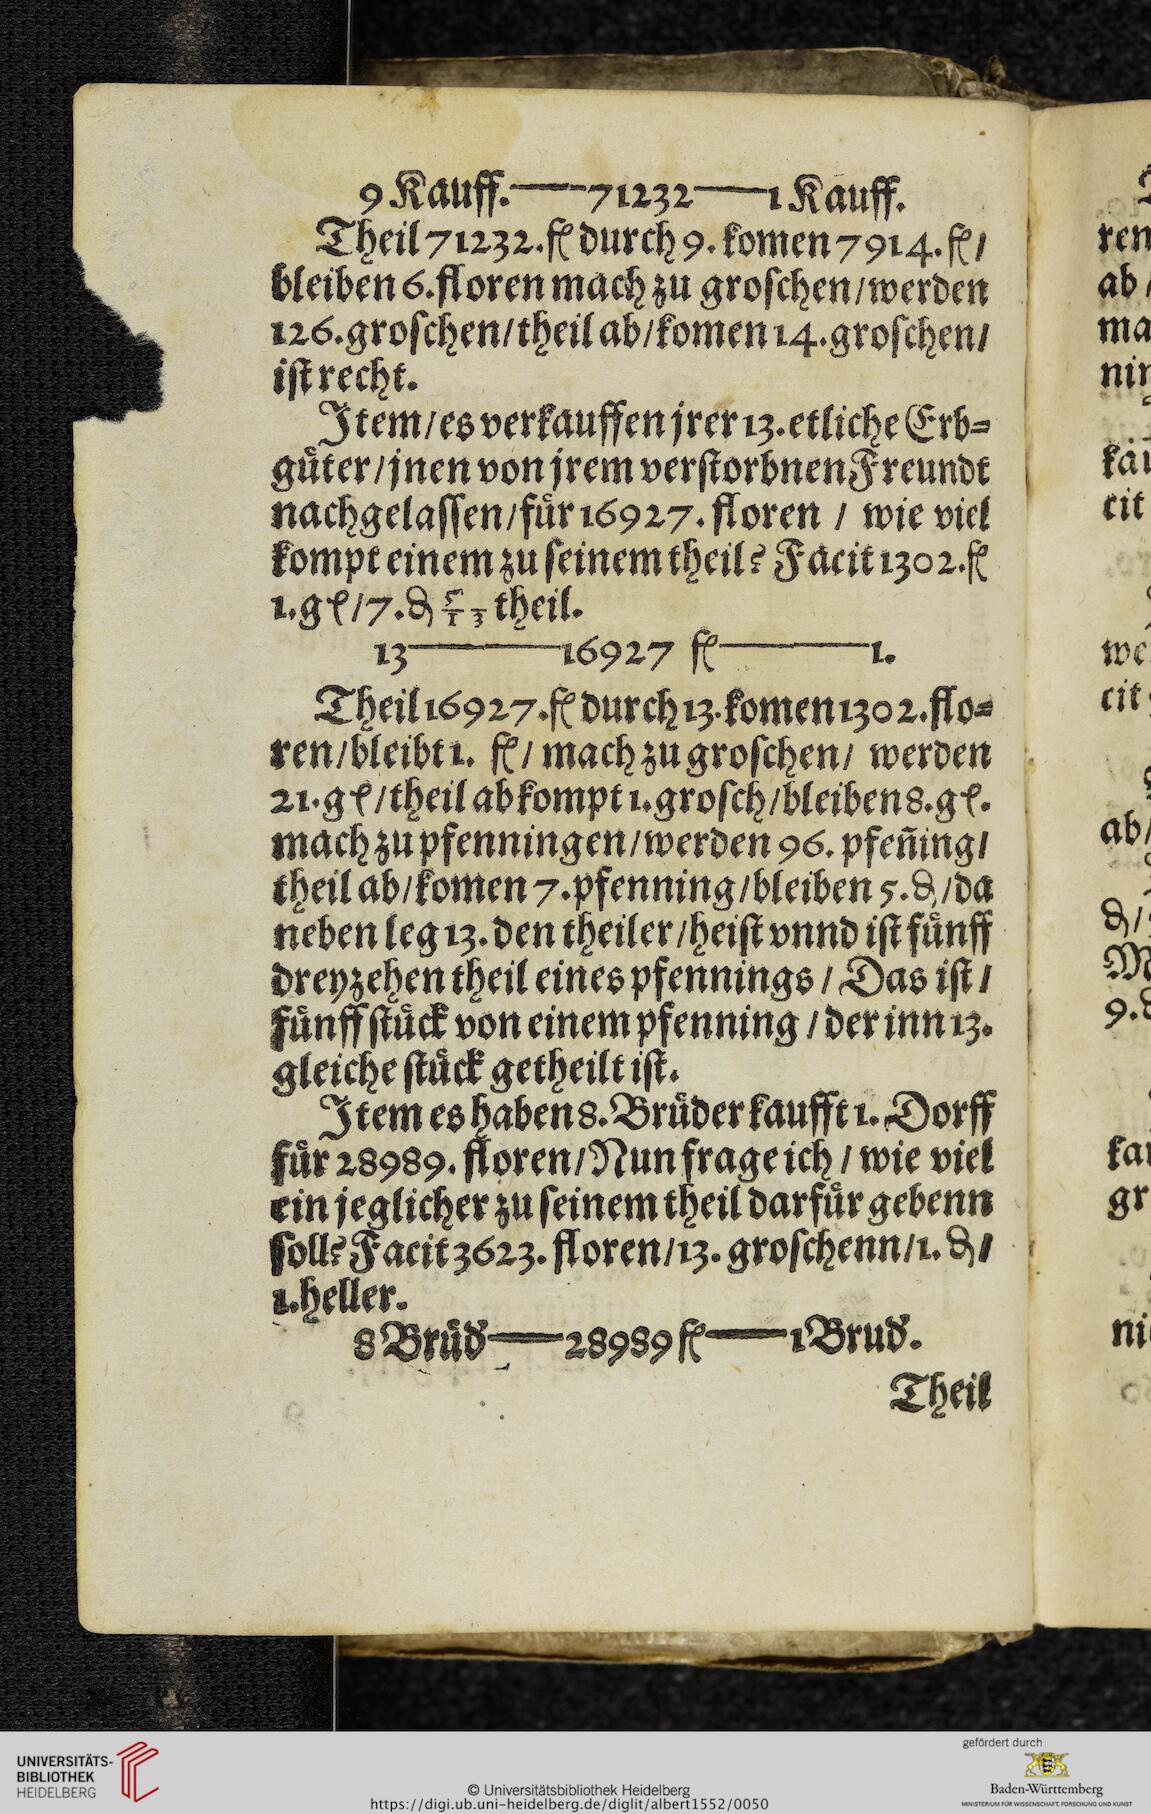 9 Kauff.——71232——1 Kauff.
Theil 71232. fl durch 9. komen 7914. fl /
bleiben 6. floren mach zu groschen / werden
126. groschen / theil ab / komen 14. groschen /
ist recht.
Item / es verkauffen jrer 13. etliche Erb=
guͤter / jnen von jrem verstorbnen Freundt
nachgelassen / fuͤr 16927. floren / wie viel
kompt einem zu seinem theil? Facit 1302. fl
1. gl / 7. ₰ 5/13 theil.
13———16927 fl———1.
Theil 16927. fl durch 13. komen 1302. flo=
ren / bleibt 1. fl / mach zu groschen / werden
21. gl / theil ab kompt 1. grosch / bleiben 8. gl.
mach zu pfenningen / werden 96. pfen̄ing /
theil ab / komen 7. pfenning / bleiben 5. ₰ / da
neben leg 13. den theiler / heist vnnd ist fuͤnff
dreyzehen theil eines pfennings / Das ist /
fuͤnff stuͤck von einem pfenning / der inn 13.
gleiche stuͤck getheilt ist.
Item es haben 8. Bruͤder kaufft 1. Dorff
fuͤr 28989. floren / Nun frage ich / wie viel
ein jeglicher zu seinem theil darfuͤr gebenn
soll? Facit 3623. floren / 13. groschenn / 1. ₰ /
1. heller.
8 Bruͤd——28989 fl——1 Brud.
Theil
ren
ab /
ma
nin
kau
cit
we
cit
ab /
₰ /
M
9.
kau
gr
ni
UNIVERSITÄTS-
BIBLIOTHEK
HEIDELBERG
© Universitätsbibliothek Heidelberg
https://digi.ub.uni-heidelberg.de/diglit/albert1552/0050
gefördert durch
Baden-Württemberg
MINISTERIUM FÜR WISSENSCHAFT, FORSCHUNG UND KUNST